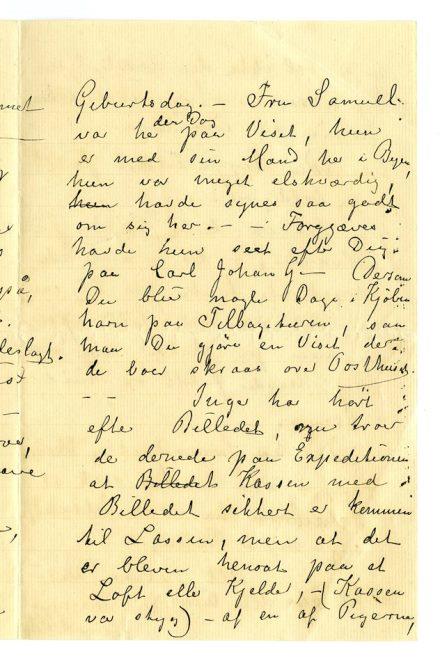 Geburtsdag. — Fru Samuel-
der Dag
var he paa Visit, hun
er med sin Mand he i Byen,
hun var meget elskværdig,
hun havde synes saa godt
om sig her. — — Forgjæves
havde hun seet efte Dig
paa Carl Johan G— Dersom
Du blir nogle Dage i Kjöben
havn paa Tilbageturen, saa
maa Du gjöre en Visit der
de boer skraas over Posthuset.
— — Inger har hört
efte Billedet, nu tror
de dernede paa Expeditionen
at Billedets Kassen med
Billedet sikkert er kommen
til Lassen, men at det
er bleven hensat paa et
Loft elle Kjelde, — (Kassen
va skyg) — af en af Pigerne,